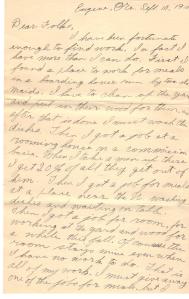 Eugene, Ore. Sept. 18, 19
Dear Folks,
I have been fortunate
enough to find work. In fact I
have more than I can do. First I
found a place to work for meals
in a boarding house run by
maids. I have to clean up the yard
and put in their wood for them
after that is done I must wash the
dishes. Then I got a job at a
rooming house on a commission
basis. When I take a man up there
I get 20% of all they get out of
him. Then I got a job for meals
at a place near the U. washing
dishes and waiting on table.
Then I got a job for room, for
working at the yard and wood for
a while this fall. Of course the
room stays same even when
I have no work to do. That is
all of my work. I must give up
one of the jobs for meals but I